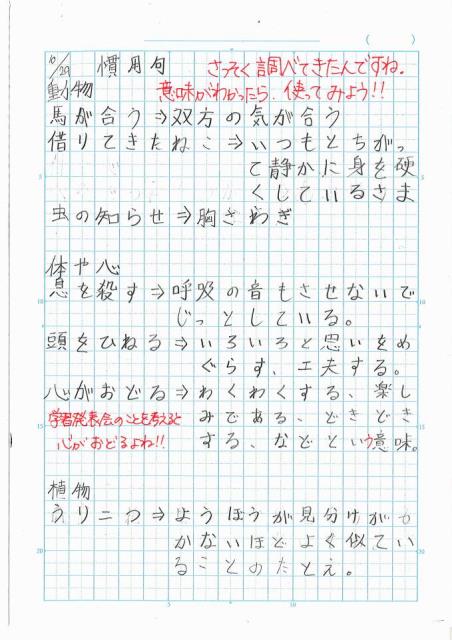 10/29 慣用句
さっそく調べてきたんですね。
意味がわかったら、使ってみよう!!
動物
馬が合う⇒双方の気が合う
借りてきたねこ⇒いつもとちがっ
て静かに身を硬
くしているさま
虫の知らせ⇒胸さわぎ
体や心
息を殺す⇒呼吸の音もさせないで
じっとしている。
頭をひねる⇒いろいろと思いをめ
ぐらす、工夫する。
心がおどる⇒わくわくする、楽し
みである、どきどき
する、などという意味。
学習発表会のことを考えると
心がおどるよね!!
植物
うり二つ⇒ようぼうが見分けがつ
かないほどよく似てい
ることのたとえ。